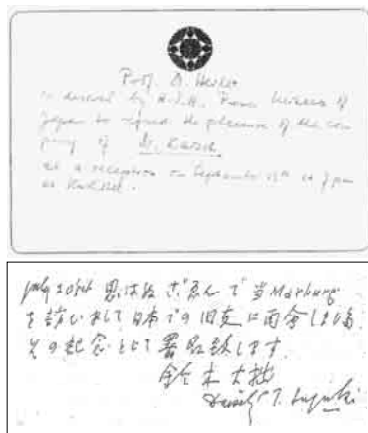 Prof. D. Heiler
is desired by H.I.H. Prince Mikasa of
Japan to request the pleasure of the com
pany of Dr.
at a reception on September 15th at 7 pm
at
July 20th 思はぬ で当 Marburg
を訪ひまして日本での旧友に面会しました
其の記念として署名致します
鈴木大拙
Daisetz T. Suzuki